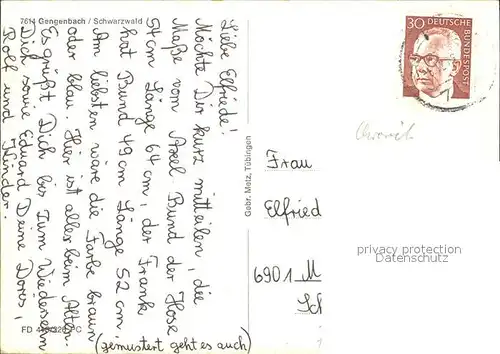 7614 Gengenbach / Schwarzwald
Liebe Elfriede!
Möchte Dir kurz mitteilen, die
Maße vom Axel Bund der Hose
54 cm Länge 64 cm, der Frank
hat Bund 49 cm Länge 52 cm
Am liebsten wäre die Farbe braun
(gemustert geht es auch)
oder blau. Hier ist alles beim Alten.
Es grüßt Dich bis zum Wiedersehn
Dich sowie Eduard Deine Doris,
Rolf und Kinder.
Gebr. Metz, Tübingen
30 DEUTSCHE BUNDESPOST
Frau
Elfried
6901 M
Sch
privacy protection
Datenschutz